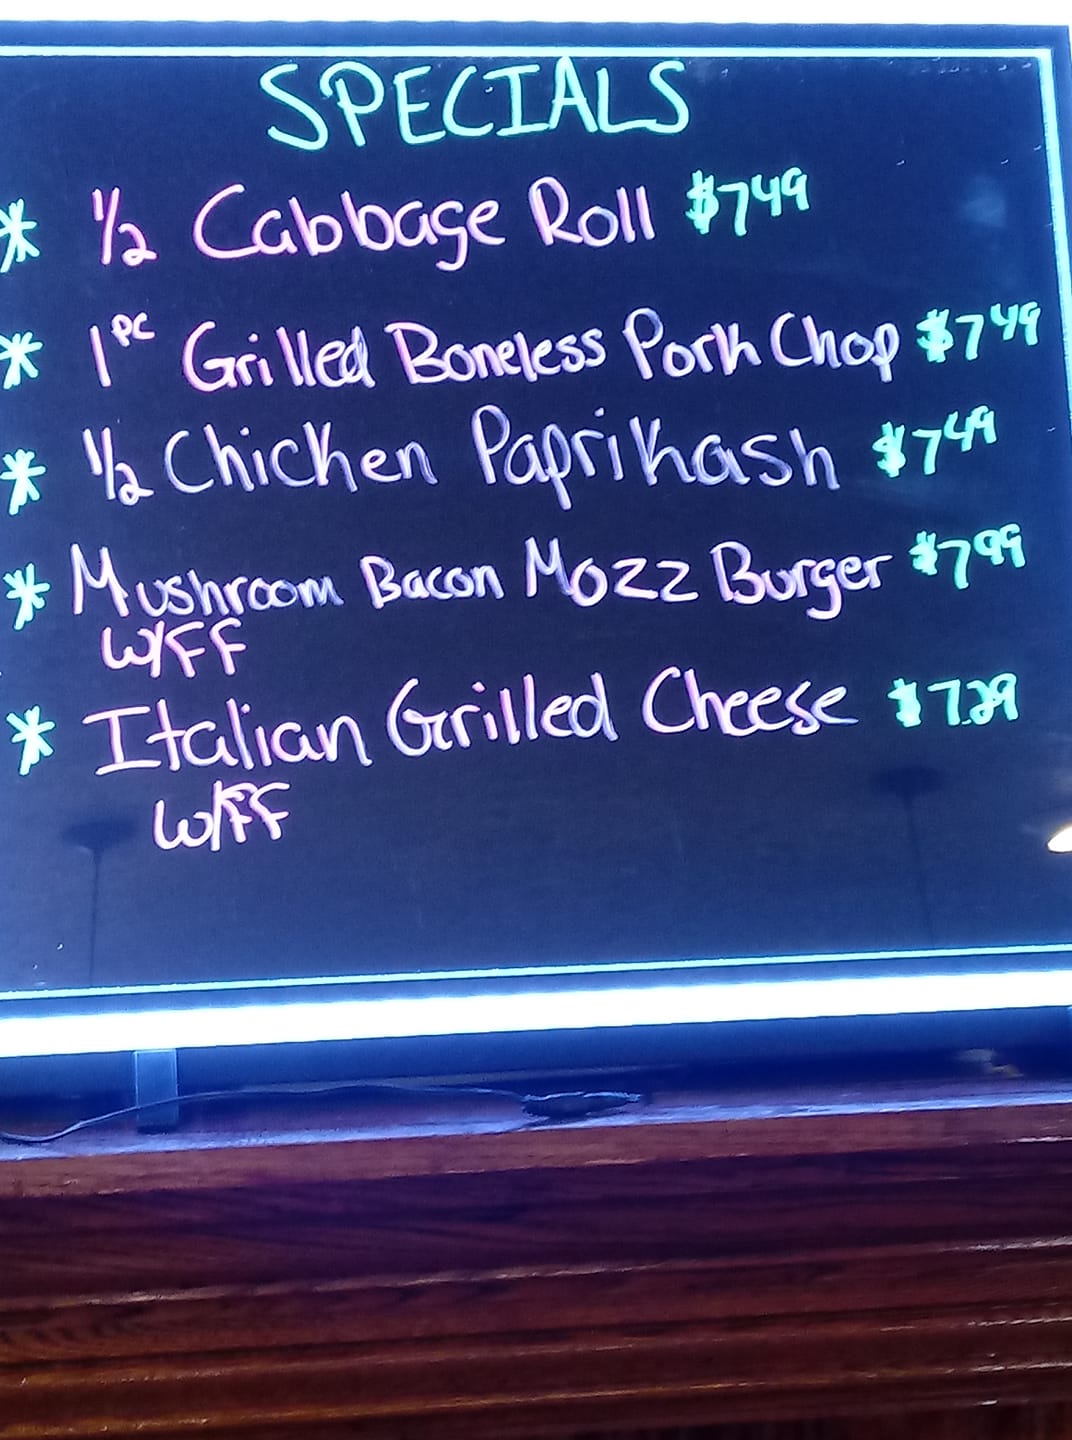 SPECIALS
* 1/2 Cabbage Roll $7 49
* 1 PC Grilled Boneless Pork Chop $7 49
* 1/2 Chicken Paprikash $7 49
* Mushroom Bacon Mozz Burger $7 99
W/FF
* Italian Grilled Cheese $7.29
W/FF